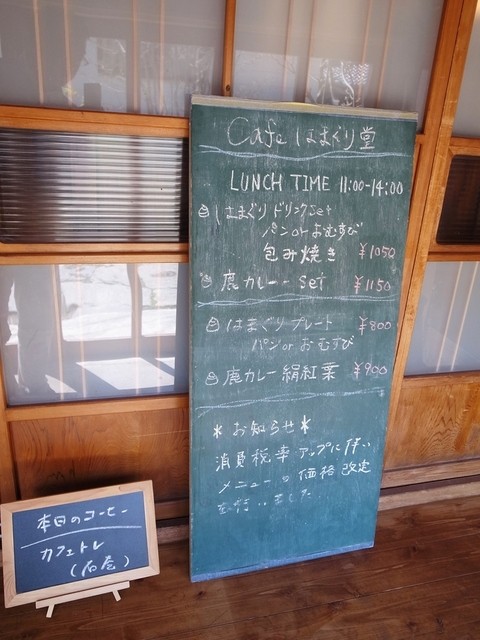 Cafe はまぐり堂
LUNCH TIME 11:00-14:00
はまぐりドリンクset
パンorおむすび
包み焼き ¥1050
鹿カレー set ¥1150
はまぐりプレート ¥800
パンorおむすび
鹿カレー 絹紅葉 ¥900
*お知らせ*
消費税率アップに伴い
メニューの価格改定
を行いました
本日のコーヒー
カフェトレ
(石巻)